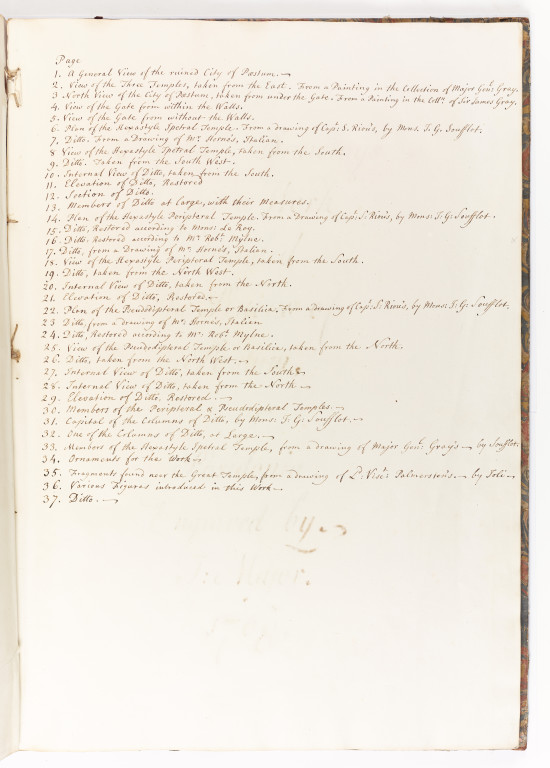 Page
1. A General View of the ruined City of Pæstum.
2. View of the Three Temples, taken from the East. From a Painting in the Collection of Major Genl. Gray.
3. North View of the City of Pæstum, taken from under the Gate. From a Painting in the Colln. of Sir James Gray.
4. View of the Gate from within the Walls.
5. View of the Gate from without the Walls.
6. Plan of the Hexastyle Ipetral Temple. From a drawing of Capt. S. Rivi's, by Mons. J. G. Soufflot.
7. Ditto. From a Drawing of Mr. Horno's, Italian.
8 View of the Hexastyle Ipetral Temple, taken from the South.
9. Ditto. Taken from the South West.
10. Internal View of Ditto, taken from the South.
11. Elevation of Ditto, Restored
12. Section of Ditto.
13. Members of Ditto at large, with their Measures.
14. Plan of the Hexastyle Peripteral Temple. From a Drawing of Capt. S. Rivi's, by Mons. J. G. Soufflot.
15. Ditto, Restored according to Mons. Le Roy.
16. Ditto, Restored according to Mr. Robt. Mylne.
17. Ditto, from a Drawing of Mr. Horno's, Italian.
18. View of the Hexastyle Peripteral Temple, taken from the South.
19. Ditto, taken from the North West.
20. Internal View of Ditto, taken from the North.
21. Elevation of Ditto, Restored.
22. Plan of the Pseudodipteral Temple or Basilica. From a drawing of Capt. S. Rivi's, by Mons. J. G. Soufflot.
23 Ditto, from a drawing of Mr. Horno's, Italian
24. Ditto, Restored according to Mr. Robt. Mylne.
25. View of the Pseudodipteral Temple or Basilica, taken from the North.
26. Ditto, taken from the North West.
27. Internal View of Ditto, taken from the South
28. Internal View of Ditto, taken from the North
29. Elevation of Ditto, Restored.
30. Members of the Peripteral & Pseudodipteral Temples.
31. Capital of the Columns of Ditto, by Mons. J. G. Soufflot.
32. One of the Columns of Ditto, at Large.
33. Members of the Hexastyle Ipetral Temple, from a drawing of Major Genl. Gray's by Soufflot.
34. Ornaments for the Work.
35. Fragments found near the Great Temple, from a drawing of Ld. Visct. Palmerston's by Joli
36. Various Figures introduced in this Work
37. Ditto.